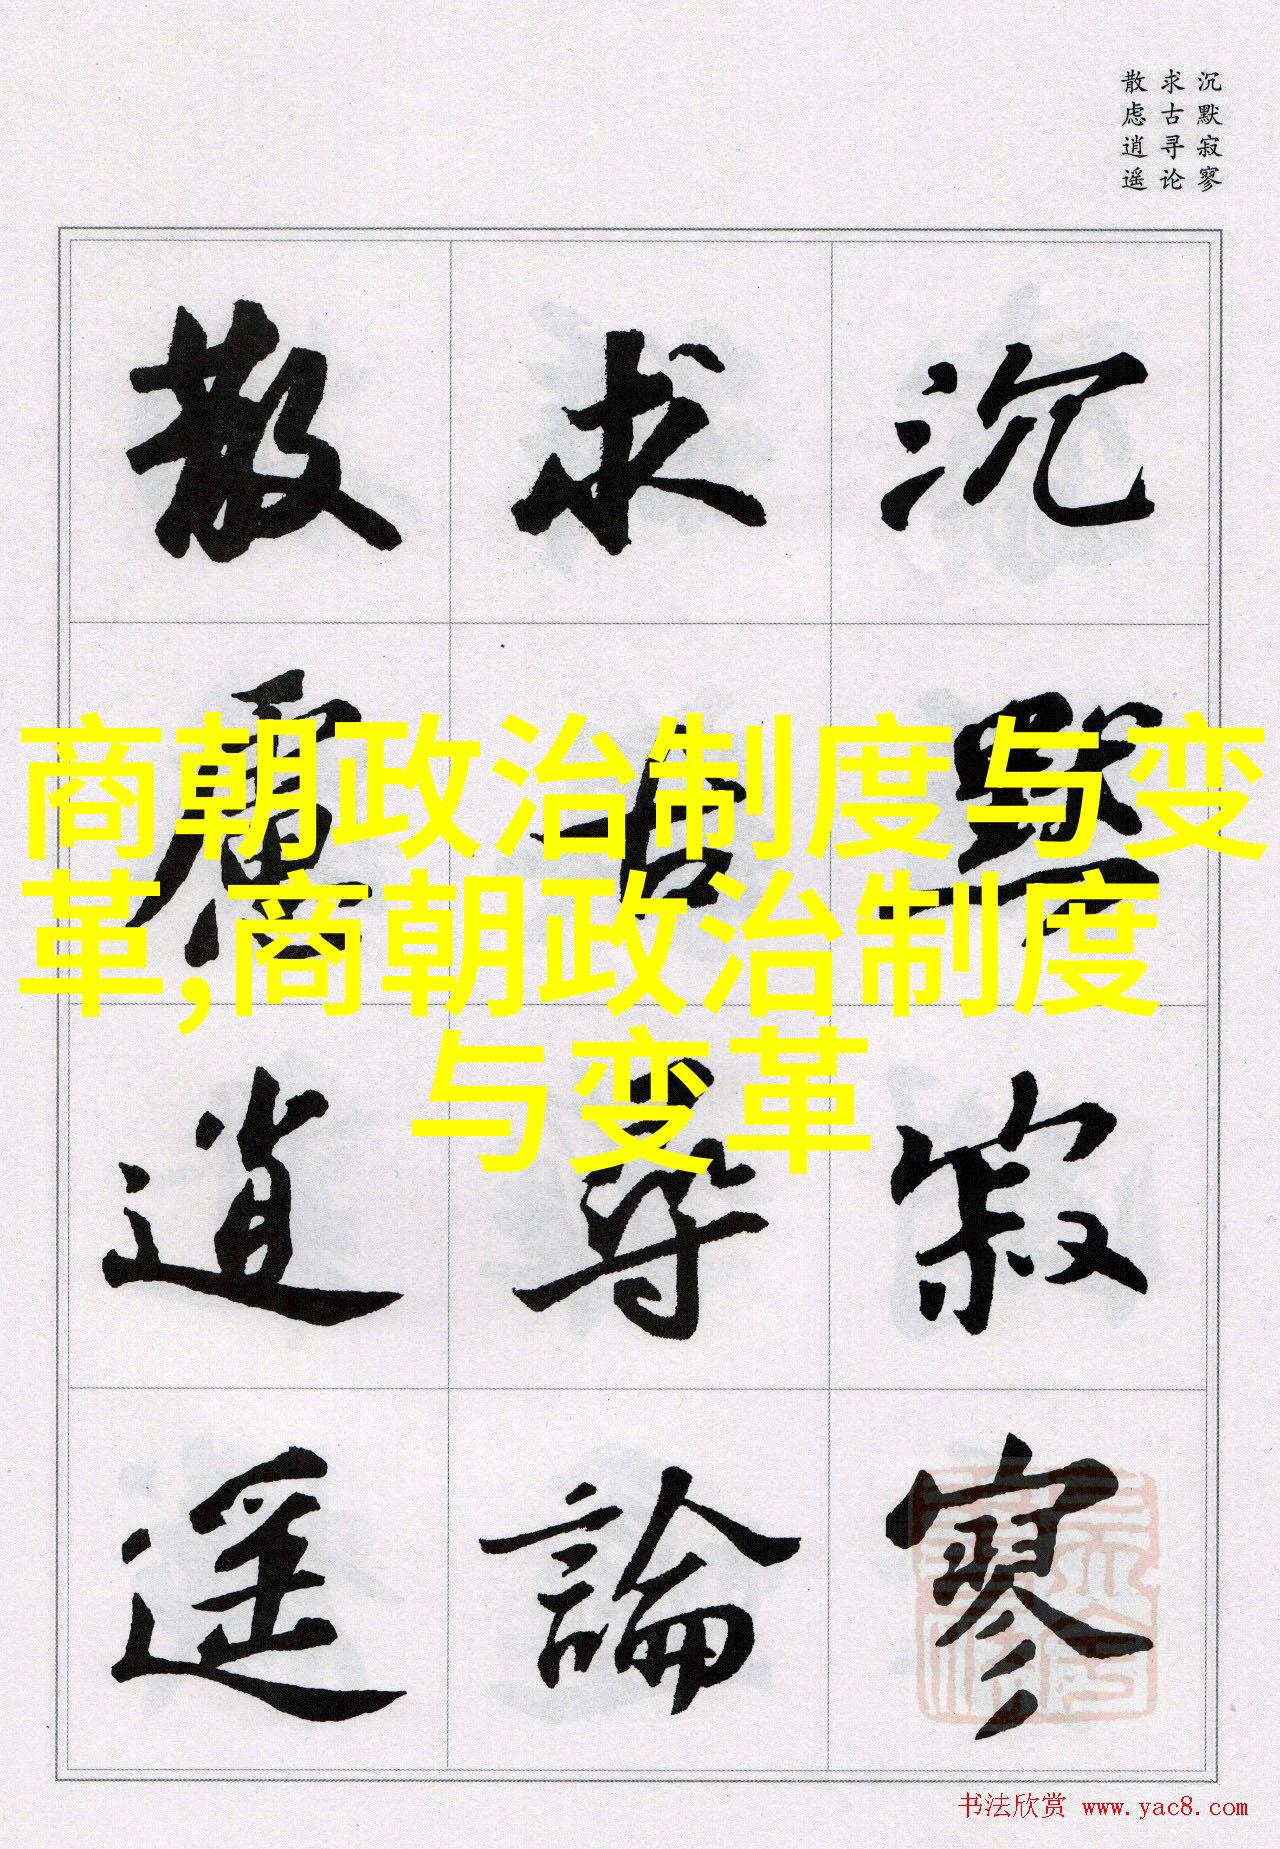 沉默寂寥
求古寻论
散虑逍遥
沉默寂寥
求古尋論
散慮逍遥
商朝政治制度与变
革,商朝政治制度
与变革
书法欣赏 www.yac8.com